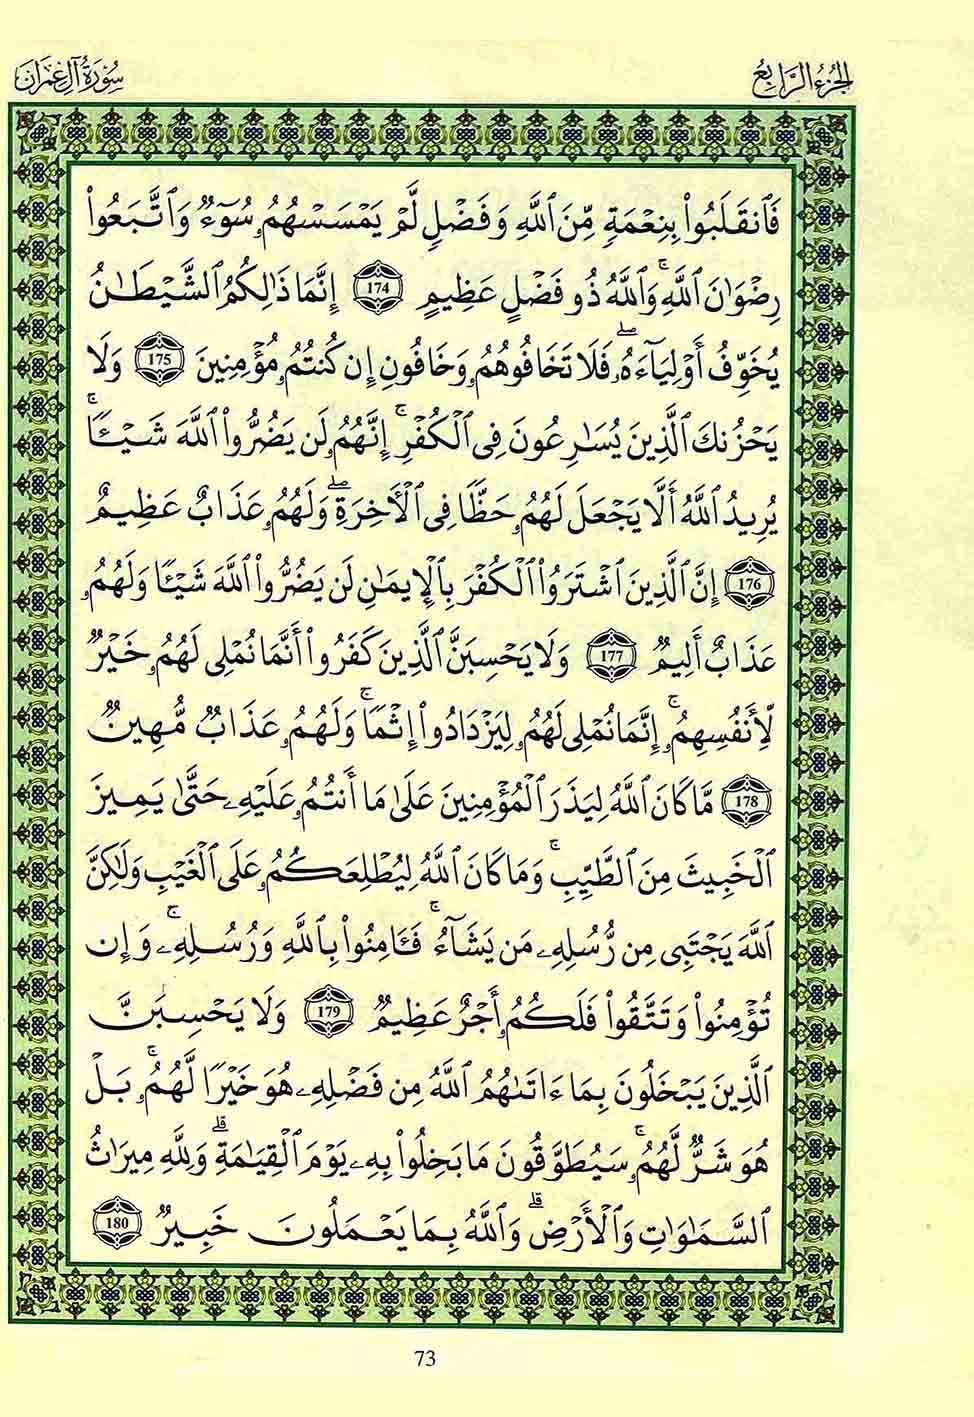 الجزء الرابع
سورة آل عمران
فَٱنقَلَبُواْ بِنِعْمَةٖ مِّنَ ٱللَّهِ وَفَضْلٖ لَّمْ يَمْسَسْهُمُۥ سُوٓءٞ وَٱتَّبَعُواْ
رِضْوَٰنَ ٱللَّهِۚ وَٱللَّهُ ذُو فَضْلٍ عَظِيمٍ 174 إِنَّمَا ذَٰلِكُمُ ٱلشَّيْطَٰنُ
يُخَوِّفُ أَوْلِيَآءَهُۥۖ فَلَا تَخَافُوهُمُۥ وَخَافُونِ إِن كُنتُمُۥ مُؤْمِنِينَ 175 وَلَا
يَحْزُنكَ ٱلَّذِينَ يُسَٰرِعُونَ فِى ٱلْكُفْرِۚ إِنَّهُمُۥ لَن يَضُرُّواْ ٱللَّهَ شَيْـٔٗاۚ
يُرِيدُ ٱللَّهُ أَلَّا يَجْعَلَ لَهُمُۥ حَظّٗا فِى ٱلْأَخِرَةِۖ وَلَهُمُۥ عَذَابٌ عَظِيمٌ
176 إِنَّ ٱلَّذِينَ ٱشْتَرَوُاْ ٱلْكُفْرَ بِٱلْإِيمَٰنِ لَن يَضُرُّواْ ٱللَّهَ شَيْـٔٗا وَلَهُمُۥ
عَذَابٌ أَلِيمٞ 177 وَلَا يَحْسِبَنَّ ٱلَّذِينَ كَفَرُواْ أَنَّمَا نُمْلِى لَهُمُۥ خَيْرٞ
لِّأَنفُسِهِمُۥۚ إِنَّمَا نُمْلِى لَهُمُۥ لِيَزْدَادُواْ إِثْمٗاۚ وَلَهُمُۥ عَذَابٞ مُّهِينٞ
178 مَّا كَانَ ٱللَّهُ لِيَذَرَ ٱلْمُؤْمِنِينَ عَلَىٰ مَا أَنتُمُۥ عَلَيْهِۦ حَتَّىٰ يَمِيزَ
ٱلْخَبِيثَ مِنَ ٱلطَّيِّبِۚ وَمَا كَانَ ٱللَّهُ لِيُطْلِعَكُمُۥ عَلَى ٱلْغَيْبِ وَلَٰكِنَّ
ٱللَّهَ يَجْتَبِى مِن رُّسُلِهِۦ مَن يَشَآءُۚ فَـَٔامِنُواْ بِٱللَّهِ وَرُسُلِهِۦۚ وَإِن
تُؤْمِنُواْ وَتَتَّقُواْ فَلَكُمُۥ أَجْرٌ عَظِيمٞ 179 وَلَا يَحْسِبَنَّ
ٱلَّذِينَ يَبْخَلُونَ بِمَا ءَاتَىٰهُمُ ٱللَّهُ مِن فَضْلِهِۦ هُوَ خَيْرٗا لَّهُمُۥۚ بَلْ
هُوَ شَرّٞ لَّهُمُۥۚ سَيُطَوَّقُونَ مَا بَخِلُواْ بِهِۦ يَوْمَ ٱلْقِيَٰمَةِۗ وَلِلَّهِ مِيرَٰثُ
ٱلسَّمَٰوَٰتِ وَٱلْأَرْضِۗ وَٱللَّهُ بِمَا يَعْمَلُونَ خَبِيرٞ 180
73